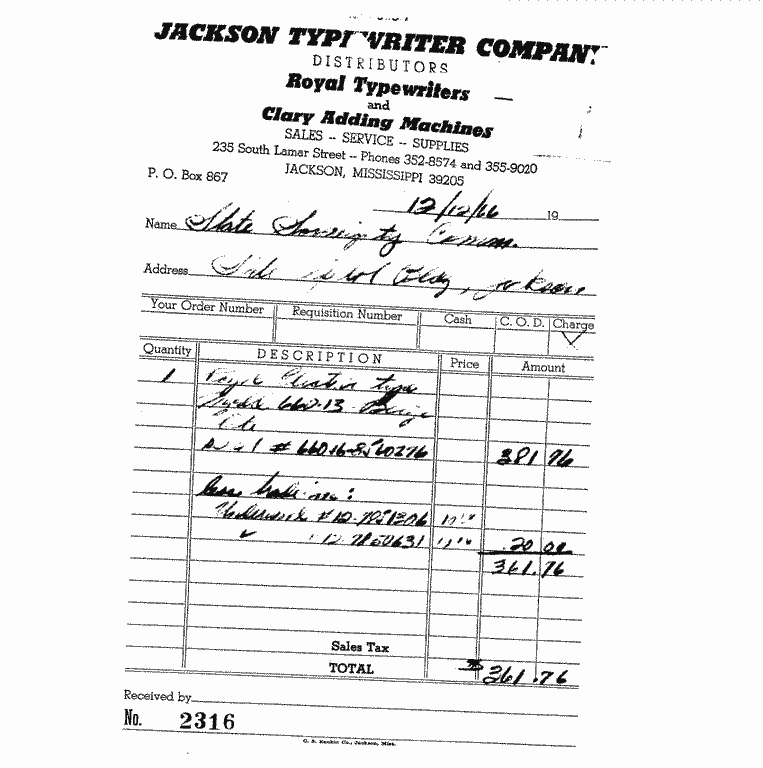 JACKSON TYPEWRITER COMPANY
DISTRIBUTORS
Royal Typewriters
and
Clary Adding Machines
SALES -- SERVICE -- SUPPLIES
235 South Lamar Street -- Phones 352-8574 and 355-9020
P. O. Box 867 JACKSON, MISSISSIPPI 39205
12/12/66 19
Name State Sovereignty Comm.
Address Bldg, Jackson
Your Order Number Requisition Number Cash C. O. D. Charge
✓
Quantity DESCRIPTION Price Amount
1 Royal Electric type
660-13 Beige
Elite
381 76
Less trade-ins:
Underwood #12-7851306
✓ 12-7850631 20 00
361.76
Sales Tax
TOTAL $361.76
Received by
No. 2316